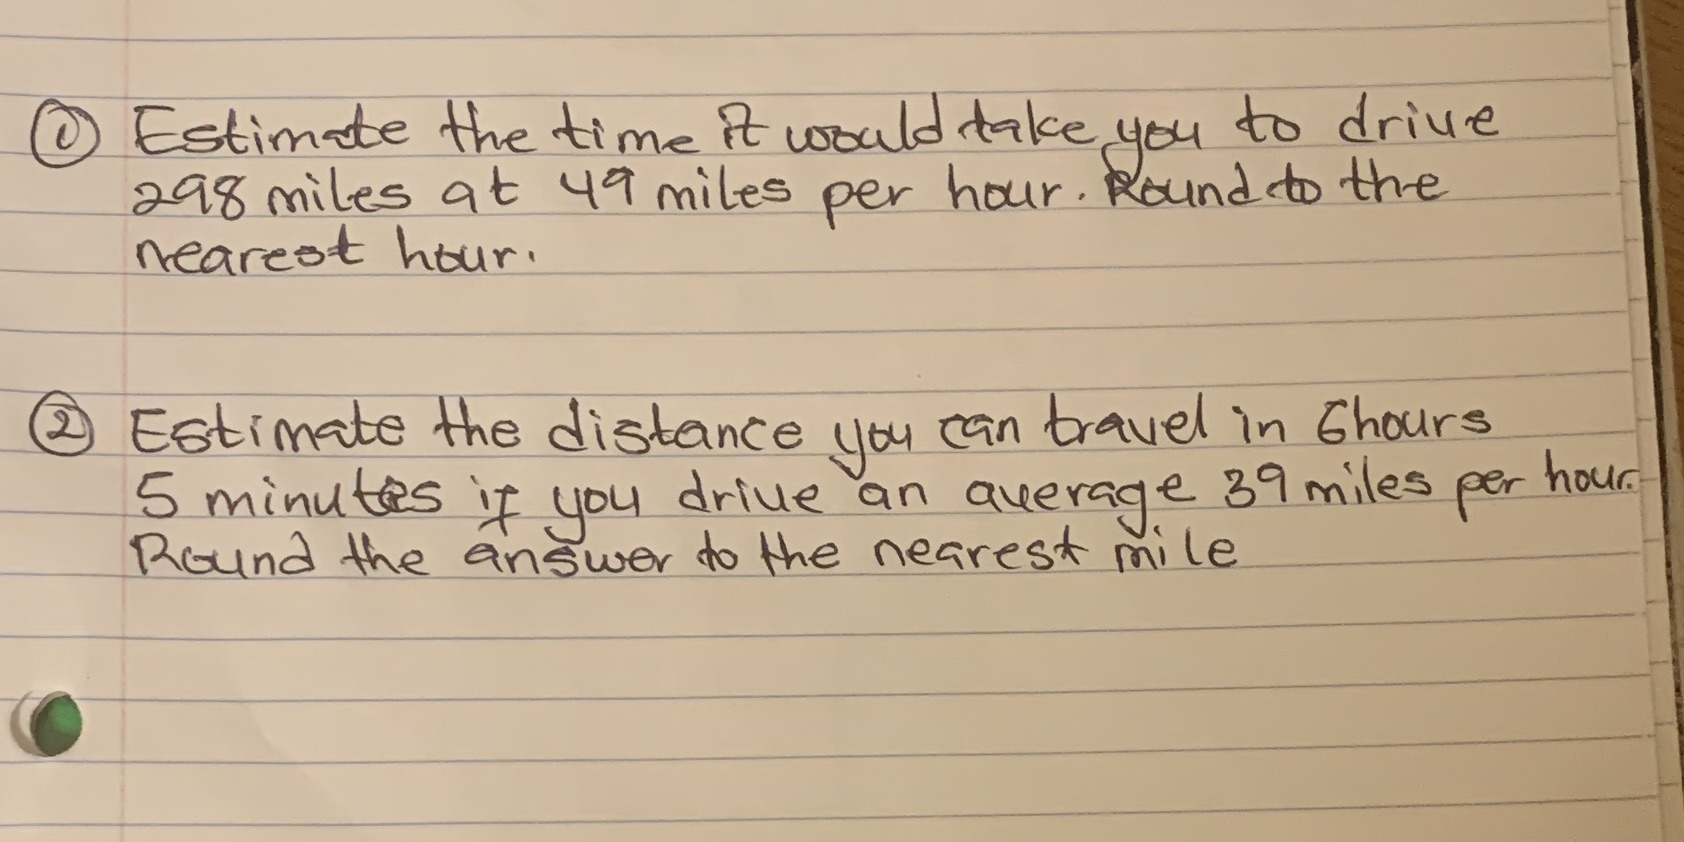 ① Estimate the time it would take you to drive
298 miles at 49 miles per hour. Round to the
nearest hour.
② Estimate the distance you can travel in 6hours
5 minutes if you drive an average 39 miles per hour.
Round the answer to the nearest mile